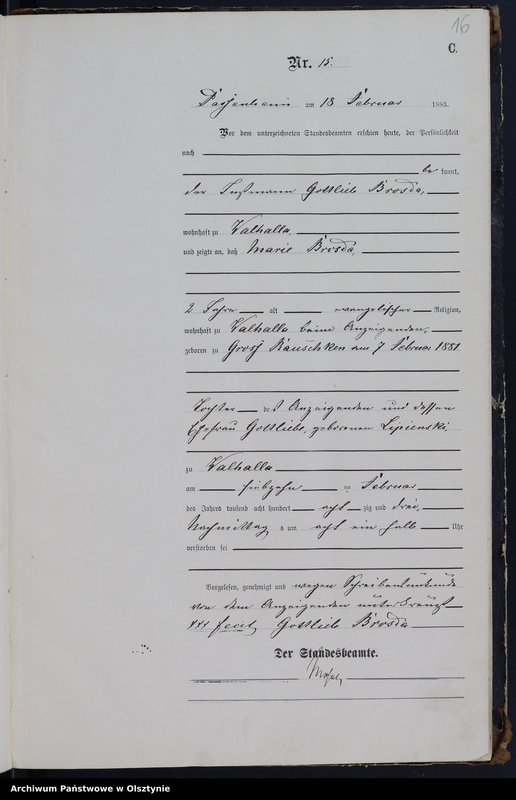 16
C.
Nr. 15.
Passenheim am 18 Februar 1883.
Vor dem unterzeichneten Standesbeamten erschien heute, der Persönlichkeit
nach
be kannt,
der Instmann Gottlieb Brosda,
wohnhaft zu Valhalla
und zeigte an, daß Marie Brosda,
2 Jahre alt evangelischer Religion,
wohnhaft zu Valhalla beim Anzeigenden,
geboren zu Groß Rauschken am 7 Februar 1881
Tochter des Anzeigenden und dessen
Ehefrau Gottliebe, geborenen Lipienski
zu Valhalla
am siebzehn ten Februar
des Jahres tausend acht hundert acht zig und drei,
Nachmittag s um acht ein halb Uhr
verstorben sei
Vorgelesen, genehmigt und wegen Schreibensunkunde
von dem Anzeigenden unterkreuzt
+++ fecit, Gottlieb Brosda
Der Standesbeamte.
Archiwum Państwowe w Olsztynie